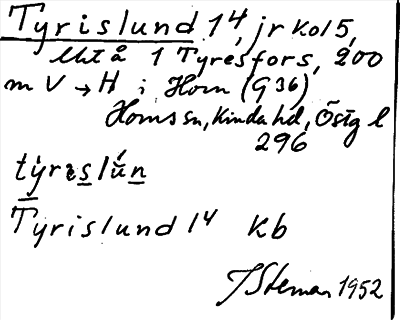 Tyrislund 1⁴, jr kol 5,
lht å 1 Tyresfors, 200
m V → H i Horn (G 36)
Horns sn, Kinda hd, Östg l
296
týrɩslún
Tyrislund 1⁴ kb
JSteman 1952